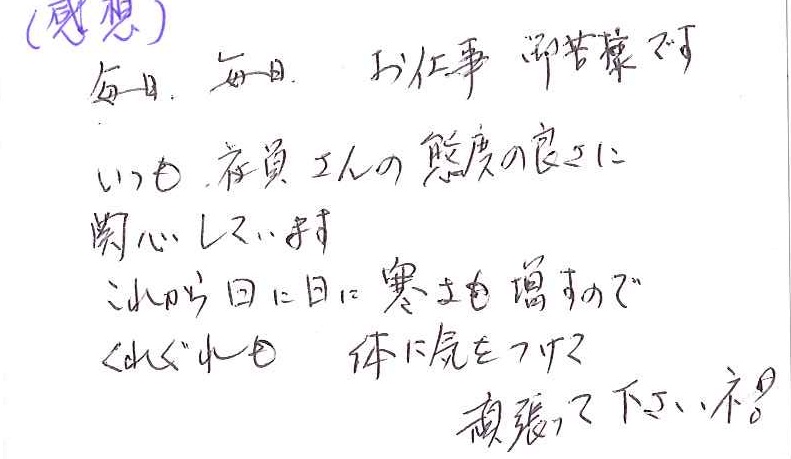 (感想)
毎日、毎日、 お仕事 御苦様です
いつも 社員さんの態度の良さに
関心しています
これから日に日に寒さも増すので
くれぐれも 体に気をつけて
頑張って下さいネ!